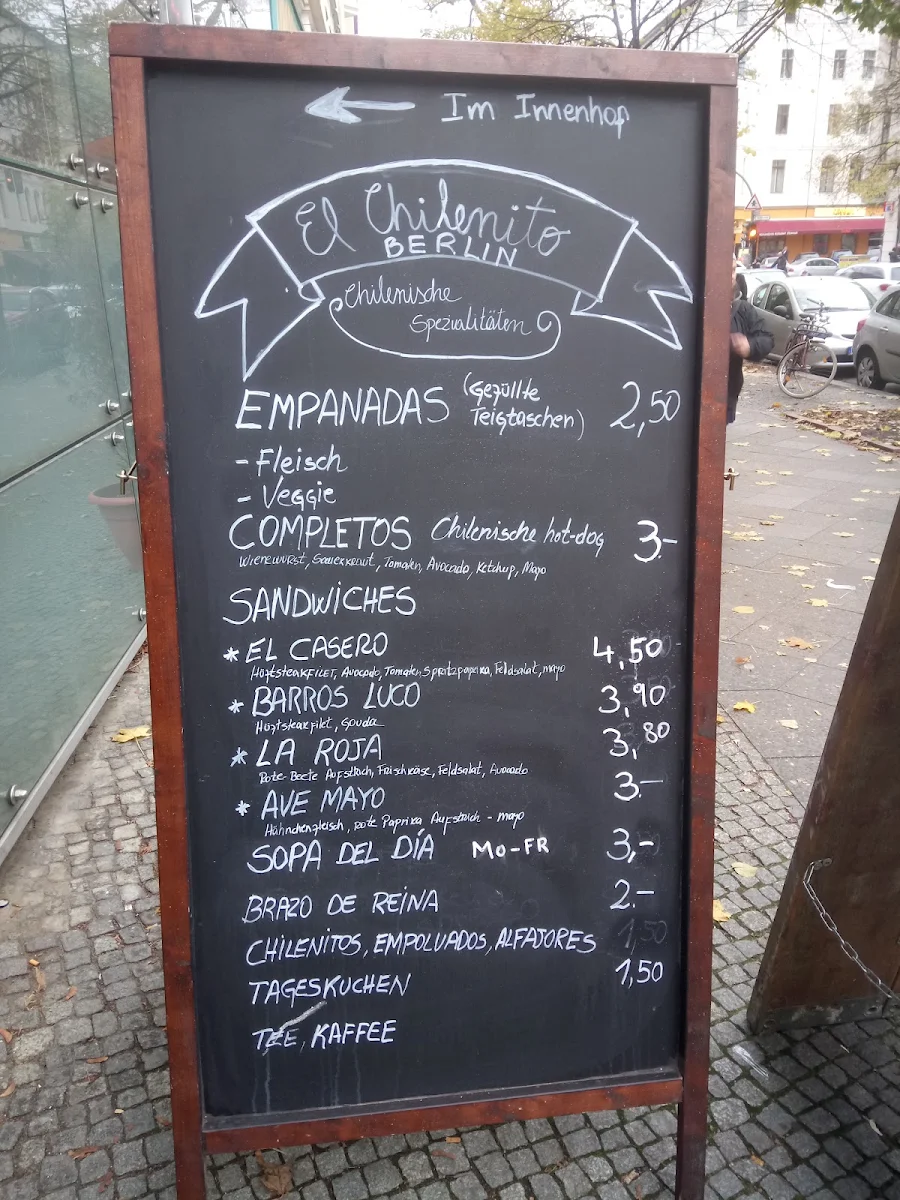 Im Innenhof
El Chilenito
BERLIN
Chilenische
Spezialitäten
EMPANADAS (Gefüllte Teigtaschen) 2,50
- Fleisch
- Veggie
COMPLETOS Chilenische hot-dog 3.-
Wienerwurst, Sauerkraut, Tomaten, Avocado, Ketchup, Mayo
SANDWICHES
* EL CASERO 4,50
Hüftsteakfilet, Avocado, Tomaten, Spitzpaprika, Feldsalat, mayo
* BARROS LUCO 3,90
Hüftsteakfilet, Gouda
* LA ROJA 3,80
Rote Beete Aufstrich, Frischkäse, Feldsalat, Avocado
* AVE MAYO 3.-
Hähnchenfleisch, rote Paprika Aufstrich - mayo
SOPA DEL DÍA MO-FR 3,-
BRAZO DE REINA 2.-
CHILENITOS, EMPOLVADOS, ALFAJORES 1,50
TAGESKUCHEN 1,50
TEE, KAFFEE